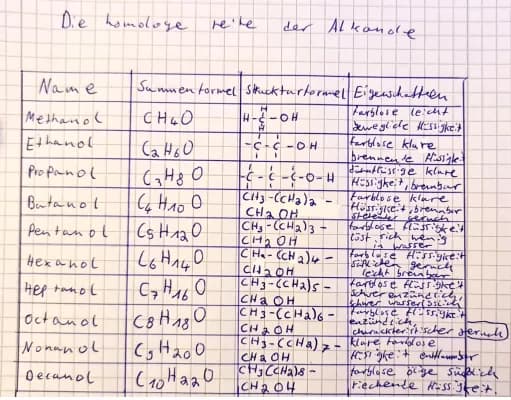 Die homologe reihe der Alkanole
Name Summenformel Strukturformel Eigenschaften
Methanol CH4O H-C-OH farblose leicht
H H bewegliche flüssigkeit
Ethanol C2H6O -C-C-OH farblose klare
brennende flüssigkeit
Propanol C3H8O -C-C-C-O-H dünnflüssige klare
flüssigkeit, brennbar
Butanol C4H10O CH3-(CH2)2- farblose klare
CH2OH flüssigkeit, brennbar
stechender geruch
Pentanol C5H12O CH3-(CH2)3- farblose flüssigkeit
CH2OH löst sich wenig
in wasser
Hexanol C6H14O CH3-(CH2)4- farblose flüssigkeit
CH2OH süßlichen geruch
leicht brennbar
Heptanol C7H16O CH3-(CH2)5- farblose flüssigkeit
CH2OH schwer entzündlich,
schwer wasserlöslich
Octanol C8H18O CH3-(CH2)6- farblose flüssigkeit
CH2OH enzündlich,
charakteritischer geruch
Nonanol C9H20O CH3-(CH2)7- klare farblose
CH2OH flüssigkeit entflammbar
Decanol C10H22O CH3(CH2)8- farblose ölige süßlich
CH2OH riechende flüssigkeit.